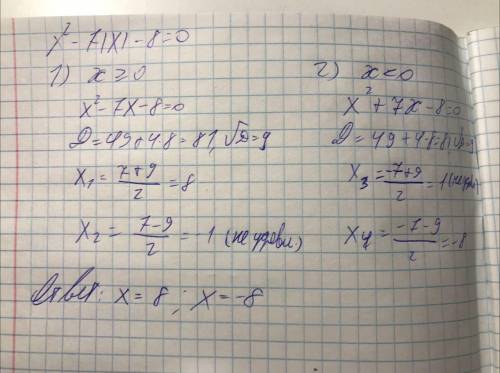 x² - 7|x| - 8 = 0
1) x ≥ 0
x² - 7x - 8 = 0
D = 49 + 4·8 = 81, √D = 9
x₁ = (7+9)/2 = 8
x₂ = (7-9)/2 = -1 (не удовл.)
2) x < 0
x² + 7x - 8 = 0
D = 49 + 4·8 = 81, √D = 9
x₃ = (-7+9)/2 = 1 (не удовл
x₄ = (-7-9)/2 = -8
Ответ: x = 8 ; x = -8